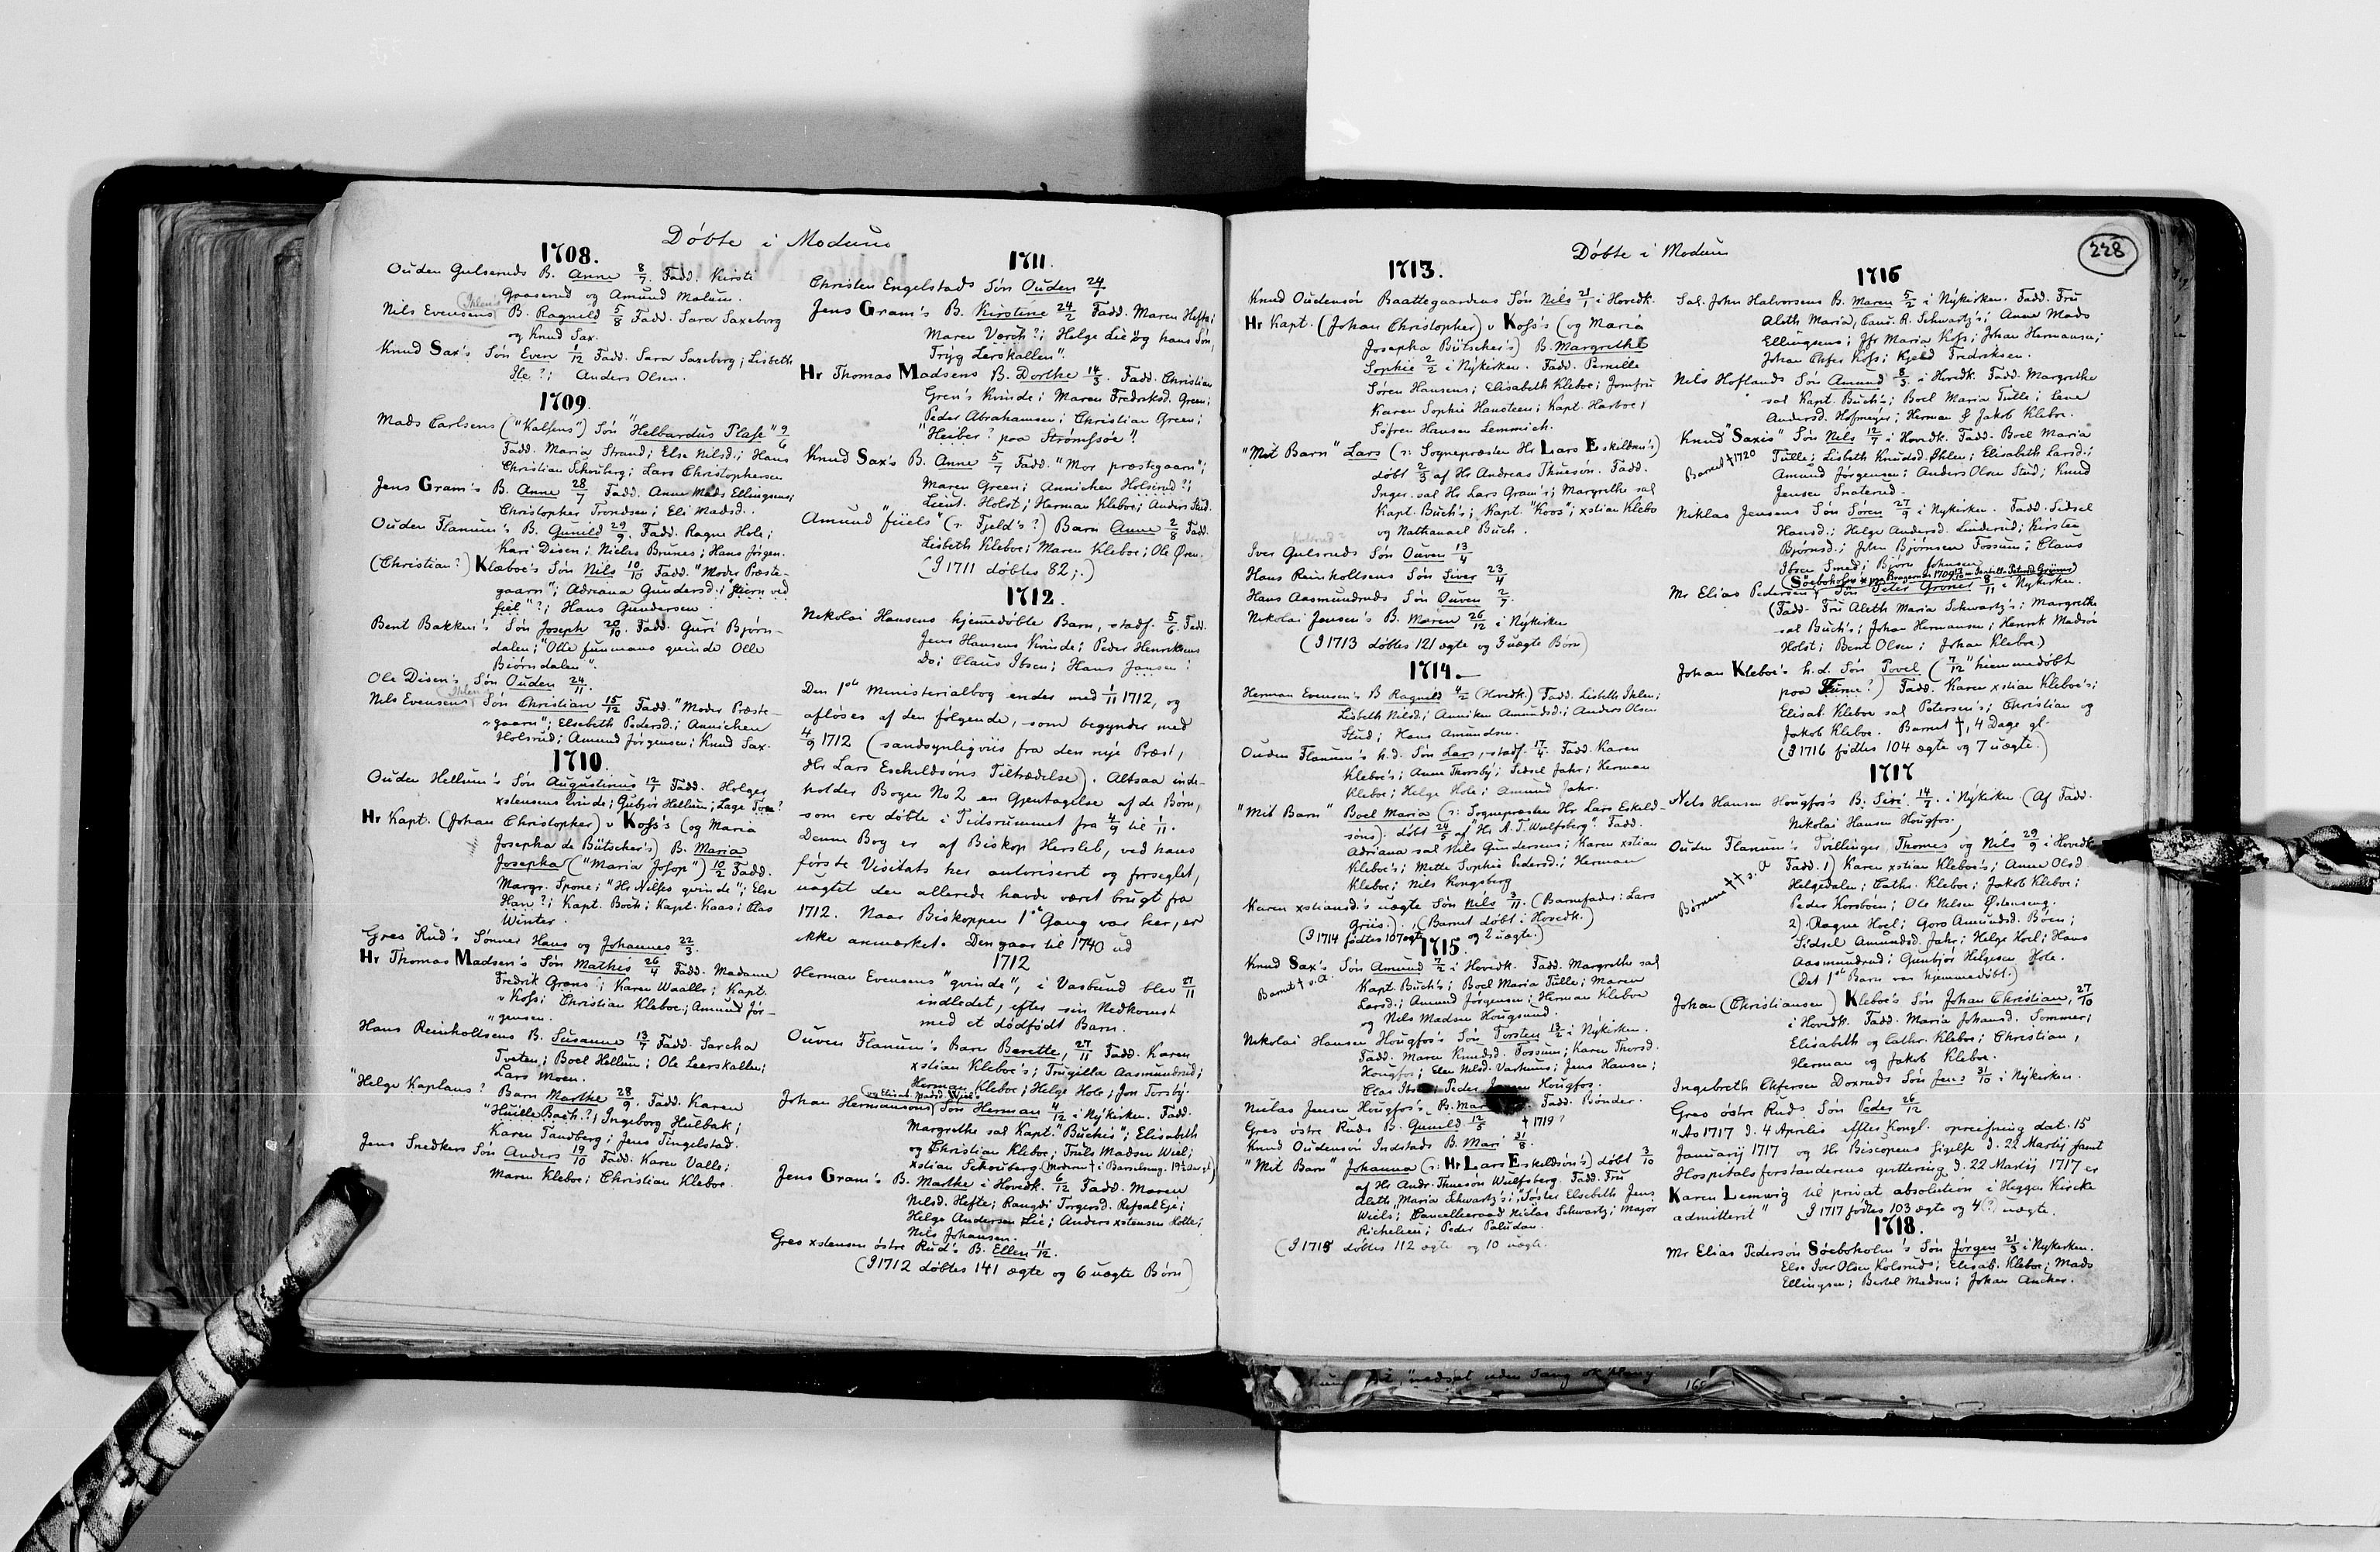 Døbte i Modum
1708.
Ouden Gulseruds B. Anne 8/7. Fadd. Kirsti
Gaaserud og Amund Molum.
Ihlen's
Nils Evensens B. Ragnild 5/8 Fadd. Sara Saxeberg
og Knud Sax.
Knud Sax's Søn Even 1/12 Fadd. Sara Saxeberg; Lisbeth
Ile?; Anders Olsen.
1709.
Mads Carlsens ("Kalsens") Søn "Helbardus Plase" 9/6
Fadd. Maria Strand; Else Nilsd.; Hans
Christian Schouberg; Lars Christophersen
Jens Gram's B. Anne 28/7 Fadd. Anne Mads Ellingsens;
Christopher Trondsen; Eli Madsd.
Ouden Flanum's B. Gunild 29/9. Fadd. Ragne Hole;
Kari Disen; Niclas Brunes; Hans Jörgen.
(Christian?) Klæboe's Søn Nils 10/10 Fadd. "Moder Præste-
gaarn"; Adriana Gundersd.; "Jörn ved
fiel"?; Hans Gundersen
Bent Bakken's Søn Joseph 20/10. Fadd. Guri Bjørn-
dalen; "Olle funmans qvinde Olle
Biörndalen".
Ole Disen's Søn Ouden 24/11.
Ihlen
Nils Evensens Søn Christian 15/12 Fadd. "Moder Præste-
gaarn"; Elsebeth Pedersd.; Annichen
Holsrud; Amund Jörgensen; Knud Sax.
1710.
Ouden Hellum's Søn Augustinus 12/1 Fadd. Holger
xstensens qvinde; Gubjör Hellum; Lage Toen?
Hr Kapt. (Johan Christopher) v Koss's (og Maria
Josepha de Bütscher's) B. Maria
Josepha ("Maria Josop") 10/2 Fadd.
Margr. Spone; "Hr Nilses qvinde"; Else
Han?; Kapt. Boch; Kapt. Kaas; Clas
Winter.
Gres Rud's Sønner Hans og Johannes 22/3.
Hr Thomas Madsen's Søn Mathis 26/4 Fadd. Madame
Fredrik Grøns; Karen Waalls; Kapt.
v Koss; Christian Kleboe; Amund Jör-
gensen.
Hans Reinholtsens B. Susanne 13/7 Fadd. Sarcha
Tveten; Boel Hellum; Ole Leerskallen;
Lars Moen.
"Helge Kaplans? Barn Marthe 28/9. Fadd. Karen
"Huille Bach"?; Ingeborg Hulbak;
Karen Tandberg; Jens Tingelstad.
Jens Snedkers Søn Anders 19/10 Fadd. Karen Valls;
Maren Kleboe; Christian Kleboe.
1711.
Christen Engelstads Søn Ouden 24/1
Jens Gram's B. Kirstine 24/2 Fadd. Maren Hefte;
Maren Vorch?; Helge Lie "og hans Søn,
Tryg Lerskallen".
Hr Thomas Madsens B. Dorthe 14/3. Fadd. Christian
Gren's Kvinde; Maren Fredriksd. Green;
Peder Abrahamsen; Christian Green;
"Heiber? paa Strømssöe"?
Knud Sax's B. Anne 5/7 Fadd. "Mor præstegaarn";
Maren Green; Annichen Holsrud?;
Lieut. Holst; Herman Kleboe; Anders Stud.
Amund "fiiels" (ɔ: Fjeld's?) Barn Anne 2/8 Fadd.
Lisbeth Kleboe; Maren Kleboe; Ole Øren.
(I 1711 døbtes 82;.)
1712.
Nikolai Hansens hjemmedøbte Barn, stadf. 5/6. Fadd.
Jens Hansens Kvinde; Peder Henriksens
Do; Claus Ibsen; Hans Jansen!
Den 1ste Ministerialbog ender med 1/11 1712, og
afløses af den følgende, som begynder med
4/9 1712 (sandsynligviis fra den nye Præst,
Hr Lars Eschildsøns Tiltrædelse). Altsaa inde-
holder Bogen No 2 en Gjentagelse af de Børn,
som ere døbte i Tidsrummet fra 4/9 til 1/11.
Denne Bog er af Biskop Hersleb, ved hans
første Visitats her autoriseret og forseglet,
uagtet den allerede havde været brugt fra
1712. Naar Biskoppen 1ste Gang var her, er
ikke anmærket. Den gaar til 1740 ud
1712
Herman Evensens "qvinde", i Vasbund blev 27/11
indledet, efter sin Nedkomst
med et dødfødt Barn.
Ouven Flanum's Barn Berette, 27/11 Fadd. Karen
xstian Kleboe's; Trugilla Aasmundrud;
Herman Kleboe; Helge Hole; Jon Torsby.
og Elisab. Madsd. Wiels
Johan Hermansons Søn Herman 4/12 i Nykirken. Fadd.
Margrethe sal Kapt. "Buchis"; Elisabeth
og Christian Kleboe; Truls Madsen Wiel;
xstian Schouberg (Modern † i Barselseng.
Jens Gram's B. Marthe i Hovedk. 6/12 Fadd. Maren
Nilsd. Hefte; Rangdi Torgersd. Refsal Eje;
Helge Andersen Lie; Anders xstensen Kolle;
Nils Johansen.
Gres xstensen østre Rud's B. Ellen 11/12.
(I 1712 døbtes 141 ægte og 6 uægte Børn)
Døbte i Modum
228
1713.
Knud Oudensön Baattegaardens Søn Nils 21/1 i Hovedk.
Hr Kapt. (Johan Christopher) v Koss's (og Maria
Josepha Bütscher's) B. Margrethe
Sophie 2/2 i Nykirken. Fadd. Pernille
Søren Hansens; Elisabeth Kleboe; Jomfru
Karen Sophie Hansteen; Kapt. Harboe;
Söfren Hansen Lemmich.
"Mit Barn" Lars (ɔ: Sognepræsten Hr Lars Eskildsen's)
døbt 2/3 af Hr Andreas Thuesön. Fadd.
Inger sal Hr Lars Gram's; Margrethe sal
Kapt. Buch's; Kapt. "Koos"; xstian Klebo
og Nathanael Buch.
Iver Gulsruds Søn Ouven 13/4
Hans Reinholtsens Søn Siver 23/4
Hans Aasmundruds Søn Ouven 2/7.
Nikolai Jensen's B. Maren 26/12 i Nykirken
(I 1713 døbtes 121 ægte og 3 uægte Børn)
1714.
Herman Evensen's B Ragnild 4/2 (Hovedk.) Fadd. Lisbeth Ihlen;
Lisbeth Nilsd.; Anniken Amundsd.; Anders Olsen
Stud; Hans Amundsen.
Ouden Flanum's h.d. Søn Lars, stadf. 17/4. Fadd. Karen
Kleboe's; Anne Thorsby; Sidsel Jahr; Herman
Kleboe; Helge Hole; Amund Jahr.
"Mit Barn" Boel Maria (ɔ: Sognepræsten Hr Lars Eskild-
søns). døbt 24/5 af "Hr A. T. Wulfsberg". Fadd.
Adriana sal Nils Gundersens; Karen xstian
Kleboe's; Mette Sophie Pedersd.; Herman
Kleboe; Nils Kongsberg
Karen xstiansd's uægte Søn Nils 3/11. (Barnefader: Lars
Griis.). (Barnet døbt i Hovedk.)
(I 1714 fødtes 107 ægte og 2 uægte.)
1715.
Knud Sax's Søn Amund 7/2 i Hovedk. Fadd. Margrethe sal
Barnet † s.a.
Kapt. Buch's; Boel Maria Tulle; Maren
Larsd.; Amund Jörgensen; Herman Kleboe
og Nils Madsen Hougsund.
Nikolai Hansen Hougfos's Søn Torsten 13/2 i Nykirken.
Fadd. Maren Knudsd. Fossum; Karen Thorsd.
Hougfos; Elen Nilsd. Varhuus; Jens Hansen;
Clas Peder Hougfos.
Niclas Jensen Hougfos's B. Mar Fadd. Bönder.
Gres østre Ruds B. Gunild 12/5 † 1719?
Knud Oudensön Indstads B. Mari 31/8.
"Mit Barn" Johanna (ɔ: Hr Lars Eskeldsön's) døbt 3/10
af Hr Andr. Thuesön Wulfsberg. Fadd. Fru
Aleth Maria Schwartz's; "Søster Elsebeth Jens
Wiels"; Cancellieraad Niclas Schwartz; Major
Richelieu; Peder Paludan.
(I 1715 døbtes 112 ægte og 10 uægte.
1716
Sal. John Halvorsens B. Maren 5/2 i Nykirken. Fadd. Fru
Aleth Maria, Canc. R. Schwartz's; Anne Mads
Ellingsens; Jfr Maria Koss; Johan Hermansen;
Johan Chfer Koss; Kjeld Fredriksen.
Nils Hoflands Søn Amund 8/3 i Hovedk. Fadd. Margrethe
sal Kapt. Buch's; Boel Maria Tulle; Lene
Andersd. Hofmeyer; Herman & Jakob Kleboe.
Knud "Saxis" Søn Nils 12/7 i Hovedk. Fadd. Boel Maria
Barnet † 1720
Tulle; Lisbeth Knudsd. Ihlen; Elisabeth Larsd.;
Amund Jørgensen; Anders Olsen Stud; Knud
Jensen Snaterud.
Niklas Jensens Søn Søren 27/9 i Nykirken. Fadd. Sidsel
Hansd.; Helge Andersd. Linderud; Kirsten
Bjørnsd.; John Bjørnsen Fossum; Claus
Ibsen Smed; Bjørn Johnsen
Mr Elias Pedersens Søn Peter Grøner 8/11 i Nykirken.
(Fadd. Fru Aleth Maria Schwartz's; Margrethe
sal Buch's; Johan Hermansen; Henrik Madsön
Holst; Bent Olsen; Johan Kleboe)
Johan Kleboe's h.d. Søn Povel (7/12 "hiemmedøbt
paa Fürne?) Fadd. Karen xstian Kleboe's;
Elisab. Kleboe sal Petersen's; Christian og
Jakob Kleboe. Barnet †, 4 Dage gl.
(I 1716 fødtes 104 ægte og 7 uægte.)
1717
Nils Hansen Hougfos's B. Siri 14/7. i Nykirken (Af Fadd.
Nikolai Hansen Hougfos.
Ouden Flanum's Tvillinger Thomes og Nils 29/9 i Hovedk
Børnene †† s. a
Fadd. 1) Karen xstian Kleboe's; Anne Olsd
Helgedalen; Cathr. Kleboe; Jakob Kleboe;
Peder Korsboen; Ole Nilsen Østenseng.
2) Ragne Hoel; Goro Amundsd. Böen;
Sidsel Amundsd. Jahr; Helge Hoel; Hans
Aasmundrud; Gunbjör Helgesen Hole.
(Det 1ste Barn var hjemmedøbt.)
Johan (Christiansen) Kleboe's Søn Johan Christian, 27/10
i Hovedk. Fadd. Maria Johansd. Sommer;
Elisabeth og Cathr. Kleboe; Christian,
Herman og Jakob Kleboe.
Ingebreth Chfersen Doxruds Søn Jens 31/10 i Nykirken.
Gres østre Ruds Søn Peder 26/12
"Ao 1717 d. 4 Aprilis efter Kongl. opreisning dat. 15
Januarij 1717 og Hr Biscopens gigelse d. 22 Martij samt
Hospitals forstanderens qvittering d. 22 Martij 1717 er
Karen Lemwig til privat absolution i Heggen Kircke
admitterit" (I 1717 fødtes 103 ægte og 4(?) uægte.
1718.
Mr Elias Pedersön Søeboholm's Søn Jørgen 21/3 i Nykirken.
Else Iver Olsen Kolsruds; Elisab. Kleboe; Mads
Ellingsen; Bertel Madsen; Johan Ancker.